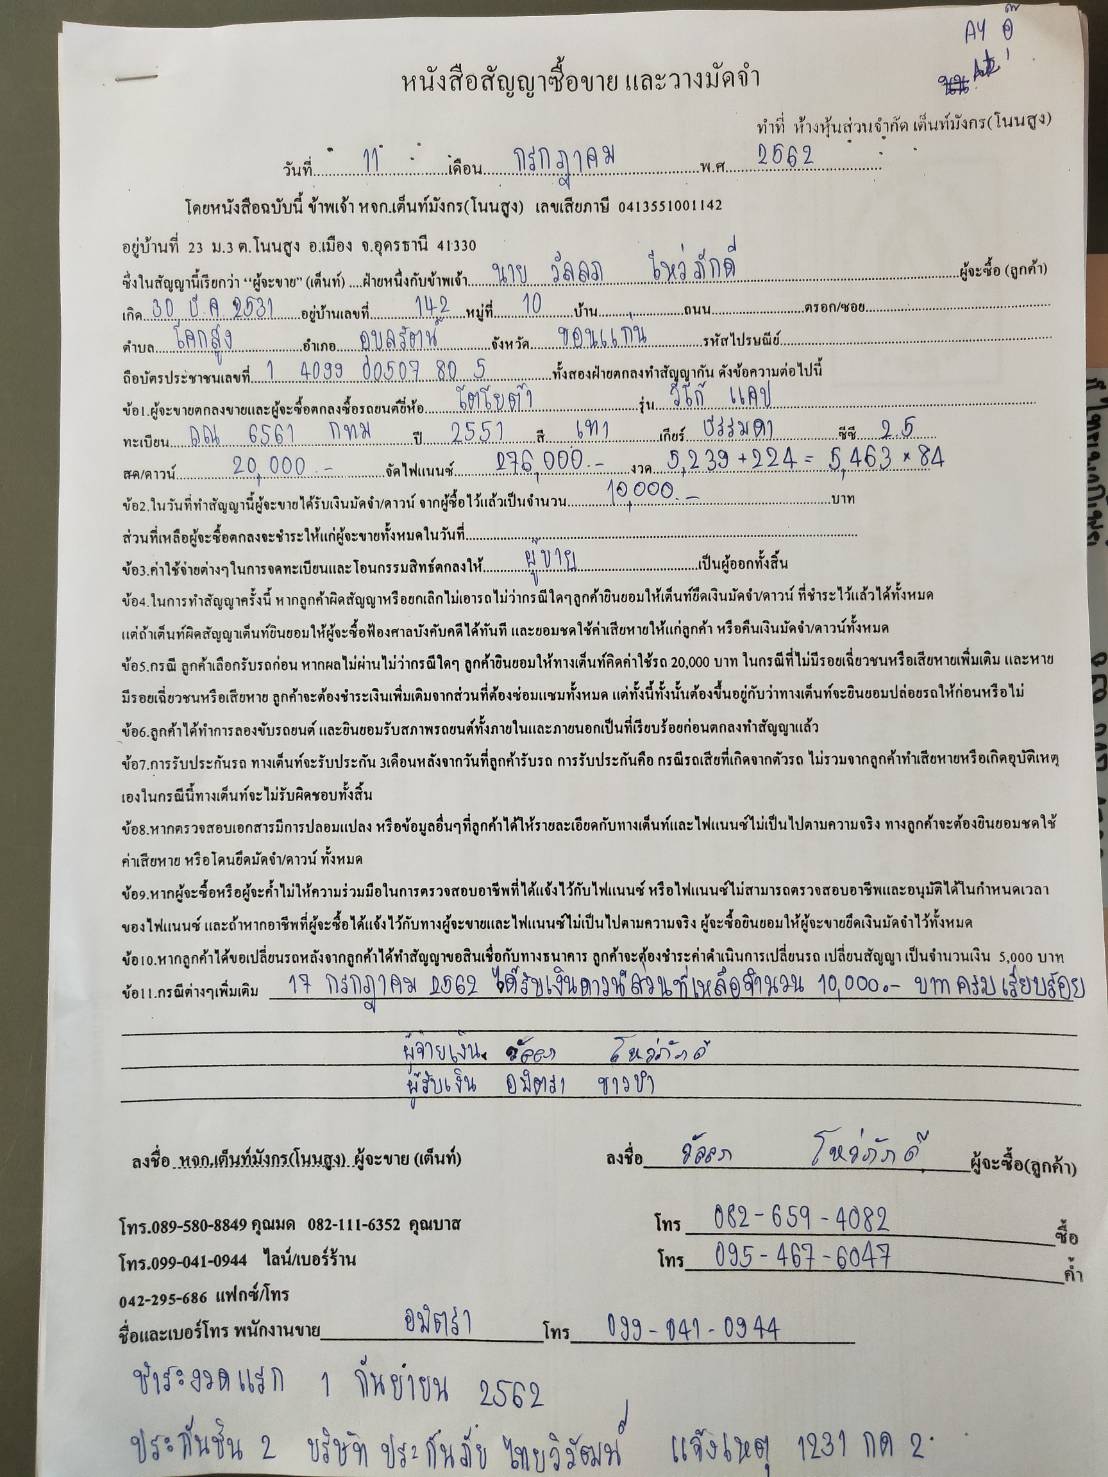 AY อุ๊
หนังสือสัญญาซื้อขาย และวางมัดจำ
ทำที่ ห้างหุ้นส่วนจำกัด เต็นท์มังกร(โนนสูง)
วันที่ 11 เดือน กรกฎาคม พ.ศ. 2562
โดยหนังสือฉบับนี้ ข้าพเจ้า หจก.เต็นท์มังกร(โนนสูง) เลขเสียภาษี 0413551001142
อยู่บ้านที่ 23 ม.3 ต.โนนสูง อ.เมือง จ.อุดรธานี 41330
ซึ่งในสัญญานี้เรียกว่า “ผู้จะขาย” (เต็นท์) ....ฝ่ายหนึ่งกับข้าพเจ้า นาย วัลลภ โหว่ภักดี ผู้จะซื้อ (ลูกค้า)
เกิด 30 มี.ค 2531 อยู่บ้านเลขที่ 142 หมู่ที่ 10 บ้าน ถนน ตรอก/ซอย
ตำบล โคกสูง อำเภอ อุบลรัตน์ จังหวัด ขอนแก่น รหัสไปรษณีย์
ถือบัตรประชาชนเลขที่ 1 4099 00507 80 5 ทั้งสองฝ่ายตกลงทำสัญญากัน ดังข้อความต่อไปนี้
ข้อ1.ผู้จะขายตกลงขายและผู้จะซื้อตกลงซื้อรถยนต์ยี่ห้อ โตโยต้า รุ่น วีโก้ แคป
ทะเบียน ฌณ 6561 กทม ปี 2551 สี เทา เกียร์ ธรรมดา ซีซี 2.5
สด/ดาวน์ 20,000.- จัดไฟแนนซ์ 276,000.- งวด 5,239 + 224 = 5,463 × 84
ข้อ2.ในวันที่ทำสัญญานี้ผู้จะขายได้รับเงินมัดจำ/ดาวน์ จากผู้ซื้อไว้แล้วเป็นจำนวน 10,000.- บาท
ส่วนที่เหลือผู้จะซื้อตกลงจะชำระให้แก่ผู้จะขายทั้งหมดในวันที่
ข้อ3.ค่าใช้จ่ายต่างๆในการจดทะเบียนและโอนกรรมสิทธ์ตกลงให้ ผู้ขาย เป็นผู้ออกทั้งสิ้น
ข้อ4.ในการทำสัญญาครั้งนี้ หากลูกค้าผิดสัญญาหรือยกเลิกไม่เอารถไม่ว่ากรณีใดๆลูกค้ายินยอมให้เต็นท์ยึดเงินมัดจำ/ดาวน์ ที่ชำระไว้แล้วได้ทั้งหมด
แต่ถ้าเต็นท์ผิดสัญญาเต็นท์ยินยอมให้ผู้จะซื้อฟ้องศาลบังคับคดีได้ทันที และยอมชดใช้ค่าเสียหายให้แก่ลูกค้า หรือคืนเงินมัดจำ/ดาวน์ทั้งหมด
ข้อ5.กรณี ลูกค้าเลือกรับรถก่อน หากผลไม่ผ่านไม่ว่ากรณีใดๆ ลูกค้ายินยอมให้ทางเต็นท์คิดค่าใช้รถ 20,000 บาท ในกรณีที่ไม่มีรอยเฉี่ยวชนหรือเสียหายเพิ่มเติม และหาย
มีรอยเฉี่ยวชนหรือเสียหาย ลูกค้าจะต้องชำระเงินเพิ่มเติมจากส่วนที่ต้องซ่อมแซมทั้งหมด แต่ทั้งนี้ทั้งนั้นต้องขึ้นอยู่กับว่าทางเต็นท์จะยินยอมปล่อยรถให้ก่อนหรือไม่
ข้อ6.ลูกค้าได้ทำการลองขับรถยนต์ และยินยอมรับสภาพรถยนต์ทั้งภายในและภายนอกเป็นที่เรียบร้อยก่อนตกลงทำสัญญาแล้ว
ข้อ7.การรับประกันรถ ทางเต็นท์จะรับประกัน 3เดือนหลังจากวันที่ลูกค้ารับรถ การรับประกันคือ กรณีรถเสียที่เกิดจากตัวรถ ไม่รวมจากลูกค้าทำเสียหายหรือเกิดอุบัติเหตุ
เองในกรณีนี้ทางเต็นท์จะไม่รับผิดชอบทั้งสิ้น
ข้อ8.หากตรวจสอบเอกสารมีการปลอมแปลง หรือข้อมูลอื่นๆที่ลูกค้าได้ให้รายละเอียดกับทางเต็นท์และไฟแนนซ์ไม่เป็นไปตามความจริง ทางลูกค้าจะต้องยินยอมชดใช้
ค่าเสียหาย หรือโดนยึดมัดจำ/ดาวน์ ทั้งหมด
ข้อ9.หากผู้จะซื้อหรือผู้จะค้ำไม่ให้ความร่วมมือในการตรวจสอบอาชีพที่ได้แจ้งไว้กับไฟแนนซ์ หรือไฟแนนซ์ไม่สามารถตรวจสอบอาชีพและอนุมัติได้ในกำหนดเวลา
ของไฟแนนซ์ และถ้าหากอาชีพที่ผู้จะซื้อได้แจ้งไว้กับทางผู้จะขายและไฟแนนซ์ไม่เป็นไปตามความจริง ผู้จะซื้อยินยอมให้ผู้จะขายยึดเงินมัดจำไว้ทั้งหมด
ข้อ10.หากลูกค้าได้ขอเปลี่ยนรถหลังจากลูกค้าได้ทำสัญญาขอสินเชื่อกับทางธนาคาร ลูกค้าจะต้องชำระค่าดำเนินการเปลี่ยนรถ เปลี่ยนสัญญา เป็นจำนวนเงิน 5,000 บาท
ข้อ11.กรณีต่างๆเพิ่มเติม 17 กรกฎาคม 2562 ได้รับเงินดาวน์ส่วนที่เหลือจำนวน 10,000.- บาท ครบเรียบร้อย
ผู้จ่ายเงิน วัลลภ โหว่ภักดี
ผู้รับเงิน อมิตรา ชาวขำ
ลงชื่อ หจก.เต็นท์มังกร(โนนสูง) ผู้จะขาย (เต็นท์) ลงชื่อ วัลลภ โหว่ภักดี ผู้จะซื้อ(ลูกค้า)
โทร.089-580-8849 คุณมด 082-111-6352 คุณบาส โทร 082-659-4082 ซื้อ
โทร.099-041-0944 ไลน์/เบอร์ร้าน โทร 095-467-6047 ค้ำ
042-295-686 แฟกซ์/โทร
ชื่อและเบอร์โทร พนักงานขาย อมิตรา โทร 099-041-0944
ชำระงวดแรก 1 กันยายน 2562
ประกันชั้น 2 บริษัท ประกันภัย ไทยวิวัฒน์ แจ้งเหตุ 1231 กด 2